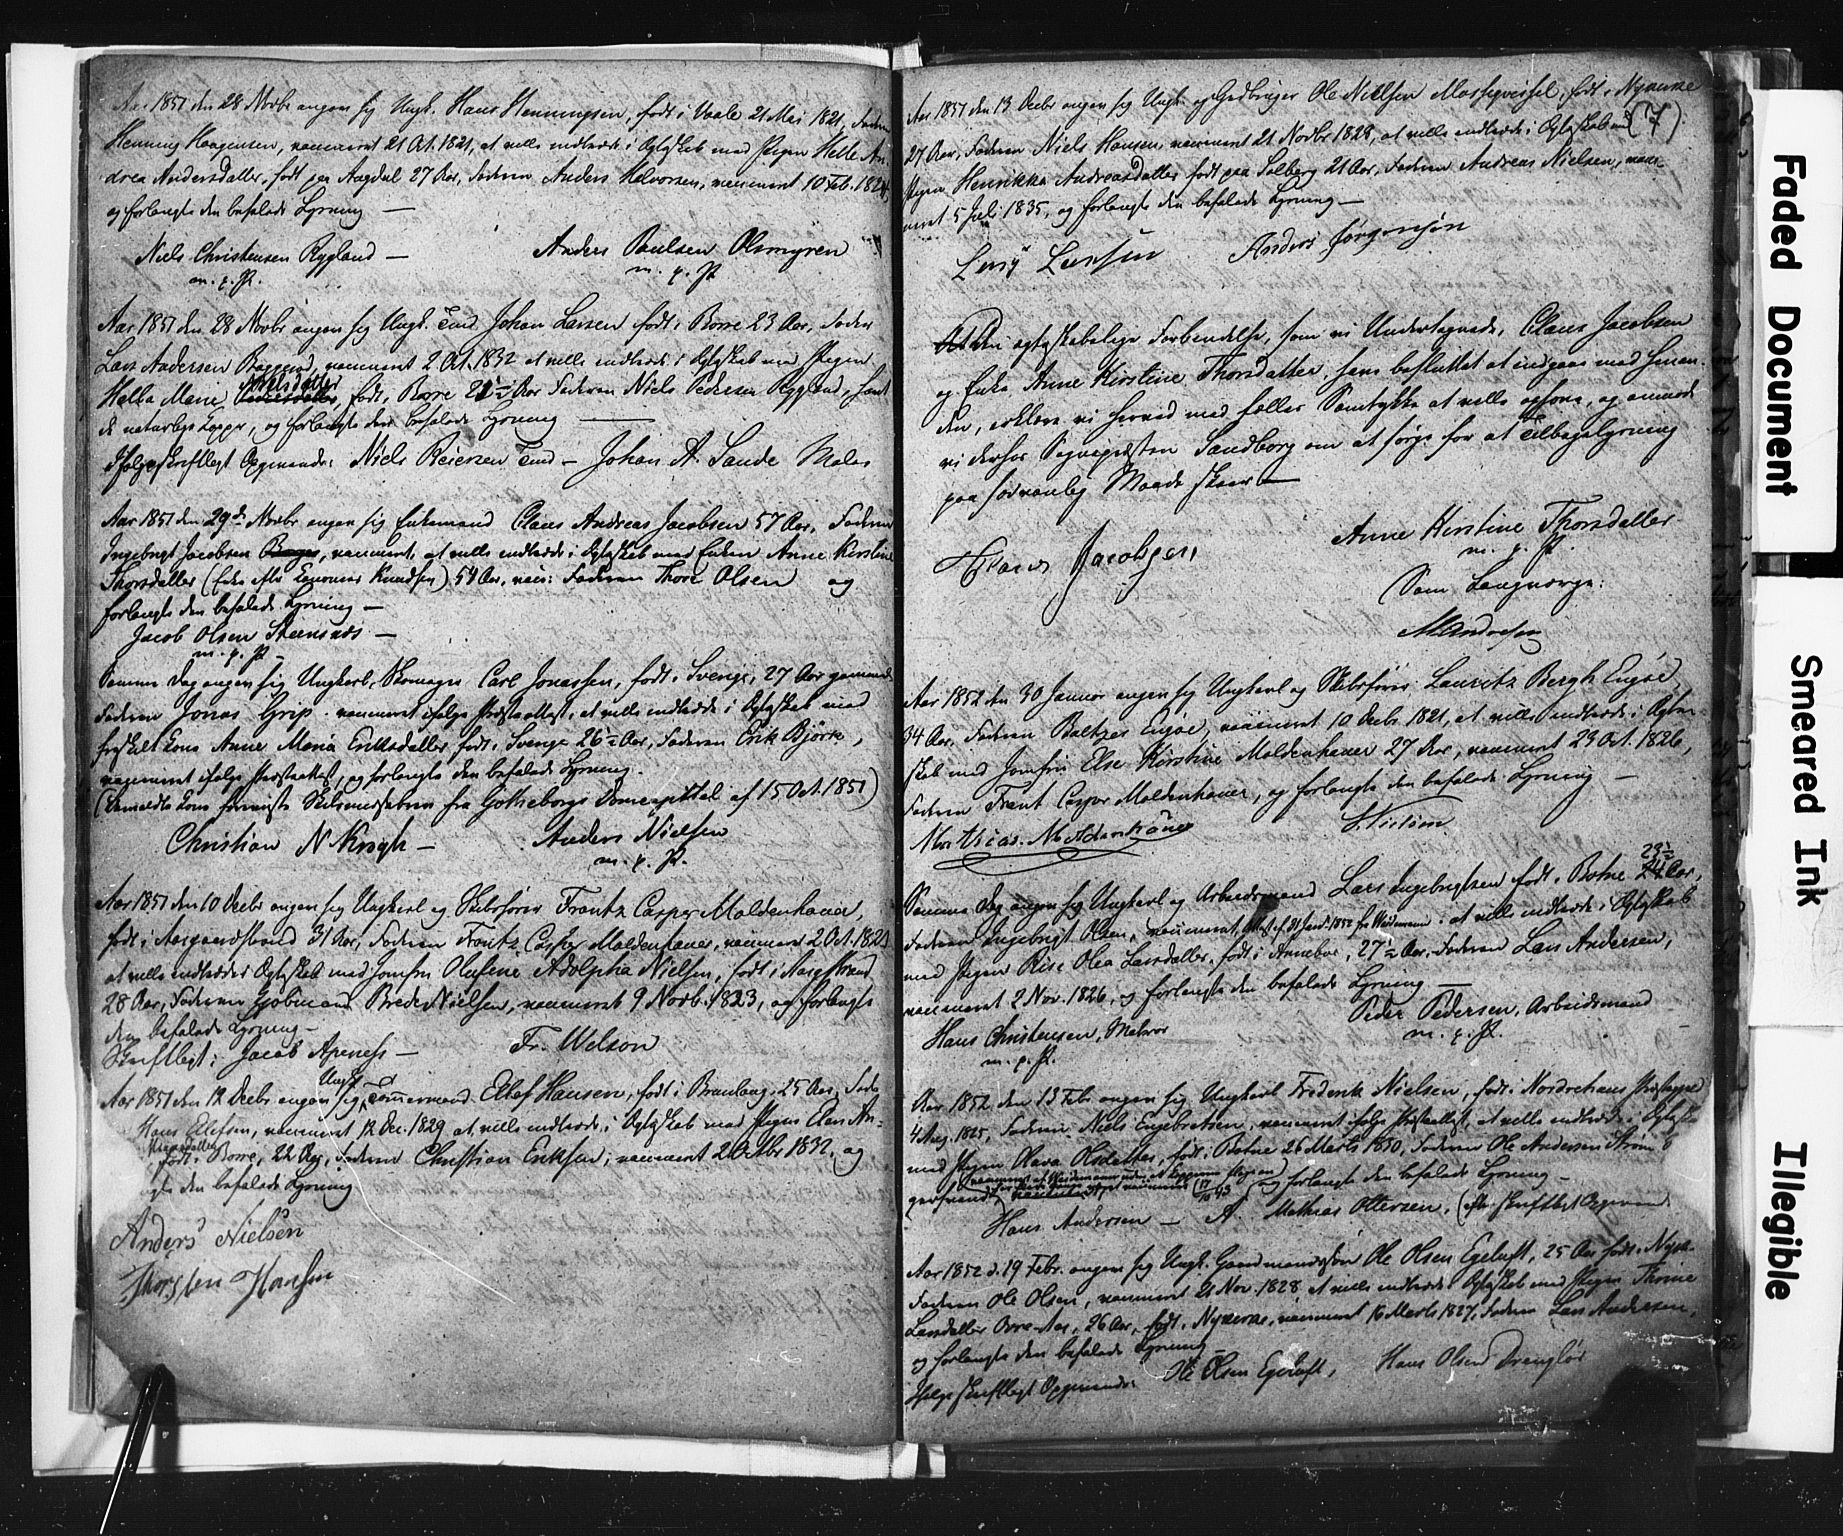 Aar 1851 den 28 Novbr angav sig Ungk. Hans Henningsen, født i Vaale 21 Mai 1821, Faderen
Henning Haagensen, vaccineret 21 Oct. 1821, at ville indtræde i Egteskab med Pigen Helle An-
drea Andersdatter, født paa Aagdal 27 Aar, Faderen Anders Halvorsen, vaccineret 10 Feb. 1824,
og forlangte den befalede Lysning —
Niels Christensen Rygland — Anders Paulsen Olsmyren
m. p. P. m. p. P.
Aar 1851 den 28 Novbr angav sig Ungk. Tmd Johan Larsen født i Borre 23 Aar, Fader
Lars Andersen, vaccineret 2 Oct. 1832 at ville indtræde i Egteskab med Pigen
Nielsdatter
Helle Marie født i Borre Aar Faderen Niels Pedersen, havt
de naturlige Kopper, og forlangte den befalede Lysning —
Ifølge skriftligt Opgivende: Niels Reiersen Tmd — Johan A. Sande Maler
Aar 1851 den 29de Novbr angav sig Enkemand Claus Andreas Jacobsen 57 Aar, Faderen
Ingebregt Jacobsen, vaccineret, at ville indtræde i Egteskab med Enken Anne Kirstine
Thorsdatter (Enke efter Knudsen) 54 Aar, vacc: Faderen Thore Olsen og
forlangte den befalede Lysning —
Jacob Olsen Steensnæs —
m. p. P. —
Samme Dag angav sig Ungkarl, Skomager Carl Jonassen, født i Sverige, 27 Aar gammel
Faderen Jonas Grip vaccineret ifølge Præsteattest, at ville indtræde i Egteskab med
fraskilt Kone Anne Maria Eriksdatter, født i Sverige 26½ Aar, Faderen Erik Björk,
vaccineret ifølge Præsteattest, og forlangte den befalede Lysning.
(Bemeldte Kone foreviste Skilsmissebrev fra Gotheborgs Domcapittel af 15 Oct. 1851)
Christian N Krogh — Anders Nielsen
m. p. P.
Aar 1851 den 10 Decbr angav sig Ungkarl og Skibsfører Frantz Casper Moldenhauer,
født i Aasgaardstrand 31 Aar, Faderen Frantz Casper Moldenhauer, vaccineret 2 Oct. 1823
at ville indtræde i Egteskab med Jomfru Olufine Adolpha Nielsen, født i Aasgstrand
28 Aar, Faderen Brede Nielsen, vaccineret 9 Novb. 1823, og forlangte
den befalede Lysning —
Skriftligt: Jacob Apeness — Fr. Welson
Ungk.
Aar 1851 den 12 Decbr angav sig Tømmermand Ellef Hansen, født i, 25 Aar, Fader
Hans Ellefsen, vaccineret 12 Dec. 1829 at ville indtræde i Egteskab med Pigen Elen An-
født i Borre, 22 Aar, Faderen Christian Eriksen, vaccineret 2 Octbr 1832, og
den befalede Lysning
Anders Nielsen
Thorsten Hansen
(7)
Aar 1851 den 13 Decbr angav sig Ungk. og Gaardbruger Ole Nielsen, født i Nykirke
27 Aar, Faderen Niels Hansen vaccineret 21 Novbr 1828, at ville indtræde i Egteskab med
Pigen Henrikka Andreasdatter født paa Solberg 21 Aar, Faderen Andreas Nielsen, vacci-
neret 5 Juli 1835, og forlangte den befalede Lysning —
Larsen Anders Jørgensøn
Den egteskabelige Forbindelse, som vi Undertegnede, Claus Jacobsen
og Enke Anne Kirstine Thorsdatter, have besluttet at indgaae med hinan-
den, erklære vi herved med fælles Samtykke at ville ophæve, og anmode
vi derfor Sogneprest Sandborg om at sørge for at Tilbagelysning
paa sædvanlig Maade skeer —
Claus Jacobsen, Anne Kirstine Thorsdatter
m. p. P.
Som Laugværge:
M Andresen
Aar 1852 den 30 Januar angav sig Ungkarl og Skibsfører Lauritz Bergh Engøe
34 Aar, Faderen Baltzer Engøe, vaccineret 10 Decbr 1821, at ville indtræde i Egte-
skab med Jomfru Else Kirstine Moldenhauer 27 Aar, vaccineret 23 Oct. 1826,
Faderen Frant Casper Moldenhauer, og forlangte den befalede Lysning —
Mathias Moldenhauer
23½
Samme Dag angav sig Ungkarl og Arbeidsmand Lars Ingebrigtsen født i Botne Aar,
Faderen Ingebrigt Olsen, vaccineret, Attest af 31 Jan. 1852 fra Weidemann: at ville indtræde i Egteskab
med Pigen Risa Olea Larsdatter, født i Anneboe, 27½ Aar, Faderen Lars Andersen,
vaccineret 2 Nov. 1826, og forlangte den befalede Lysning —
Hans Christensen, Melsor Peder Pedersen, Arbeidsmand
m. p. P. m. p. P.
Aar 1852 den 13 Febr angav sig Ungkarl Frederik Nielsen, født i Nordrehaug Præstegjeld
4 Aug. 1825, Faderen Niels Engebretsen, vaccineret ifølge Præsteattest, at ville indtræde i Egteskab
med Pigen Olava Olsdatter, født i Botne 26 Marts 1830, Faderen Ole Andersen
og forlangte den befalede Lysning —
Hans Andersen — A. Mathias Ottersen, (efter skriftligt Opgivende
Aar 1852 d. 19 Febr. angav sig Ungk. Gaardmandssøn Ole Olsen Egeluft, 25 Aar født i Nyk.
Faderen Ole Olsen, vaccineret 21 Nov. 1828, at ville indtræde i Egteskab med Pigen Thorine
Larsdatter, 26 Aar, født i Nykirke, vaccineret 16 Marts 1827, Faderen Lars Andersen,
og forlangte den befalede Lysning —
Ifølge skriftligt Opgivende: Ole Olsen Egeluft, Hans Olsen
Faded Document
Smeared Ink
Illegible